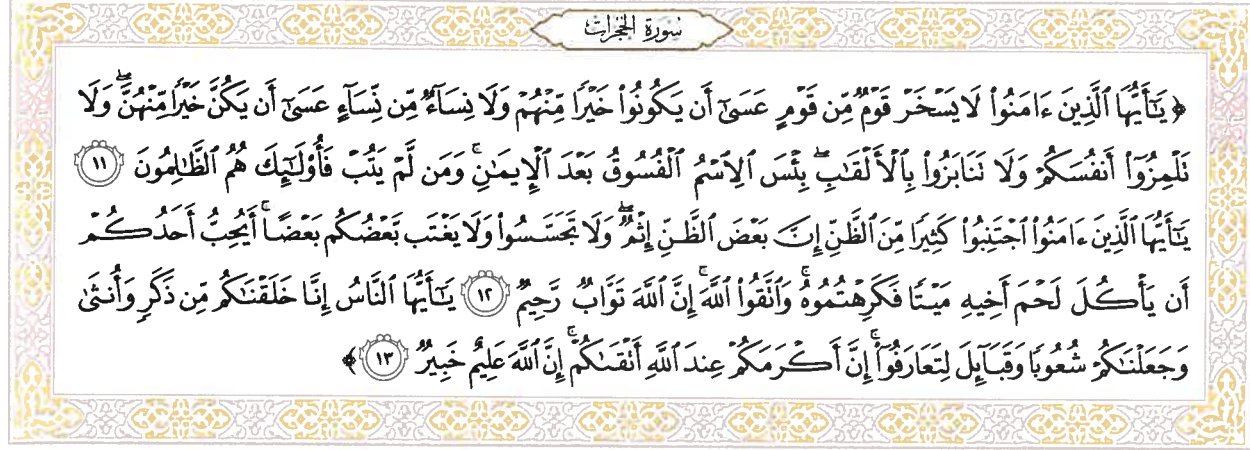 سُورَةُ الحُجُرَات
﴿ يَٰٓأَيُّهَا ٱلَّذِينَ ءَامَنُوا۟ لَا يَسْخَرْ قَوْمٌ مِّن قَوْمٍ عَسَىٰٓ أَن يَكُونُوا۟ خَيْرًا مِّنْهُمْ وَلَا نِسَآءٌ مِّن نِّسَآءٍ عَسَىٰٓ أَن يَكُنَّ خَيْرًا مِّنْهُنَّۖ وَلَا
تَلْمِزُوٓا۟ أَنفُسَكُمْ وَلَا تَنَابَزُوا۟ بِٱلْأَلْقَٰبِۖ بِئْسَ ٱلِٱسْمُ ٱلْفُسُوقُ بَعْدَ ٱلْإِيمَٰنِۚ وَمَن لَّمْ يَتُبْ فَأُو۟لَٰٓئِكَ هُمُ ٱلظَّٰلِمُونَ ١١
يَٰٓأَيُّهَا ٱلَّذِينَ ءَامَنُوا۟ ٱجْتَنِبُوا۟ كَثِيرًا مِّنَ ٱلظَّنِّ إِنَّ بَعْضَ ٱلظَّنِّ إِثْمٌۖ وَلَا تَجَسَّسُوا۟ وَلَا يَغْتَب بَّعْضُكُم بَعْضًاۚ أَيُحِبُّ أَحَدُكُمْ
أَن يَأْكُلَ لَحْمَ أَخِيهِ مَيْتًا فَكَرِهْتُمُوهُۚ وَٱتَّقُوا۟ ٱللَّهَۚ إِنَّ ٱللَّهَ تَوَّابٌ رَّحِيمٌ ١٢ يَٰٓأَيُّهَا ٱلنَّاسُ إِنَّا خَلَقْنَٰكُم مِّن ذَكَرٍ وَأُنثَىٰ
وَجَعَلْنَٰكُمْ شُعُوبًا وَقَبَآئِلَ لِتَعَارَفُوٓا۟ۚ إِنَّ أَكْرَمَكُمْ عِندَ ٱللَّهِ أَتْقَىٰكُمْۚ إِنَّ ٱللَّهَ عَلِيمٌ خَبِيرٌ ١٣ ﴾